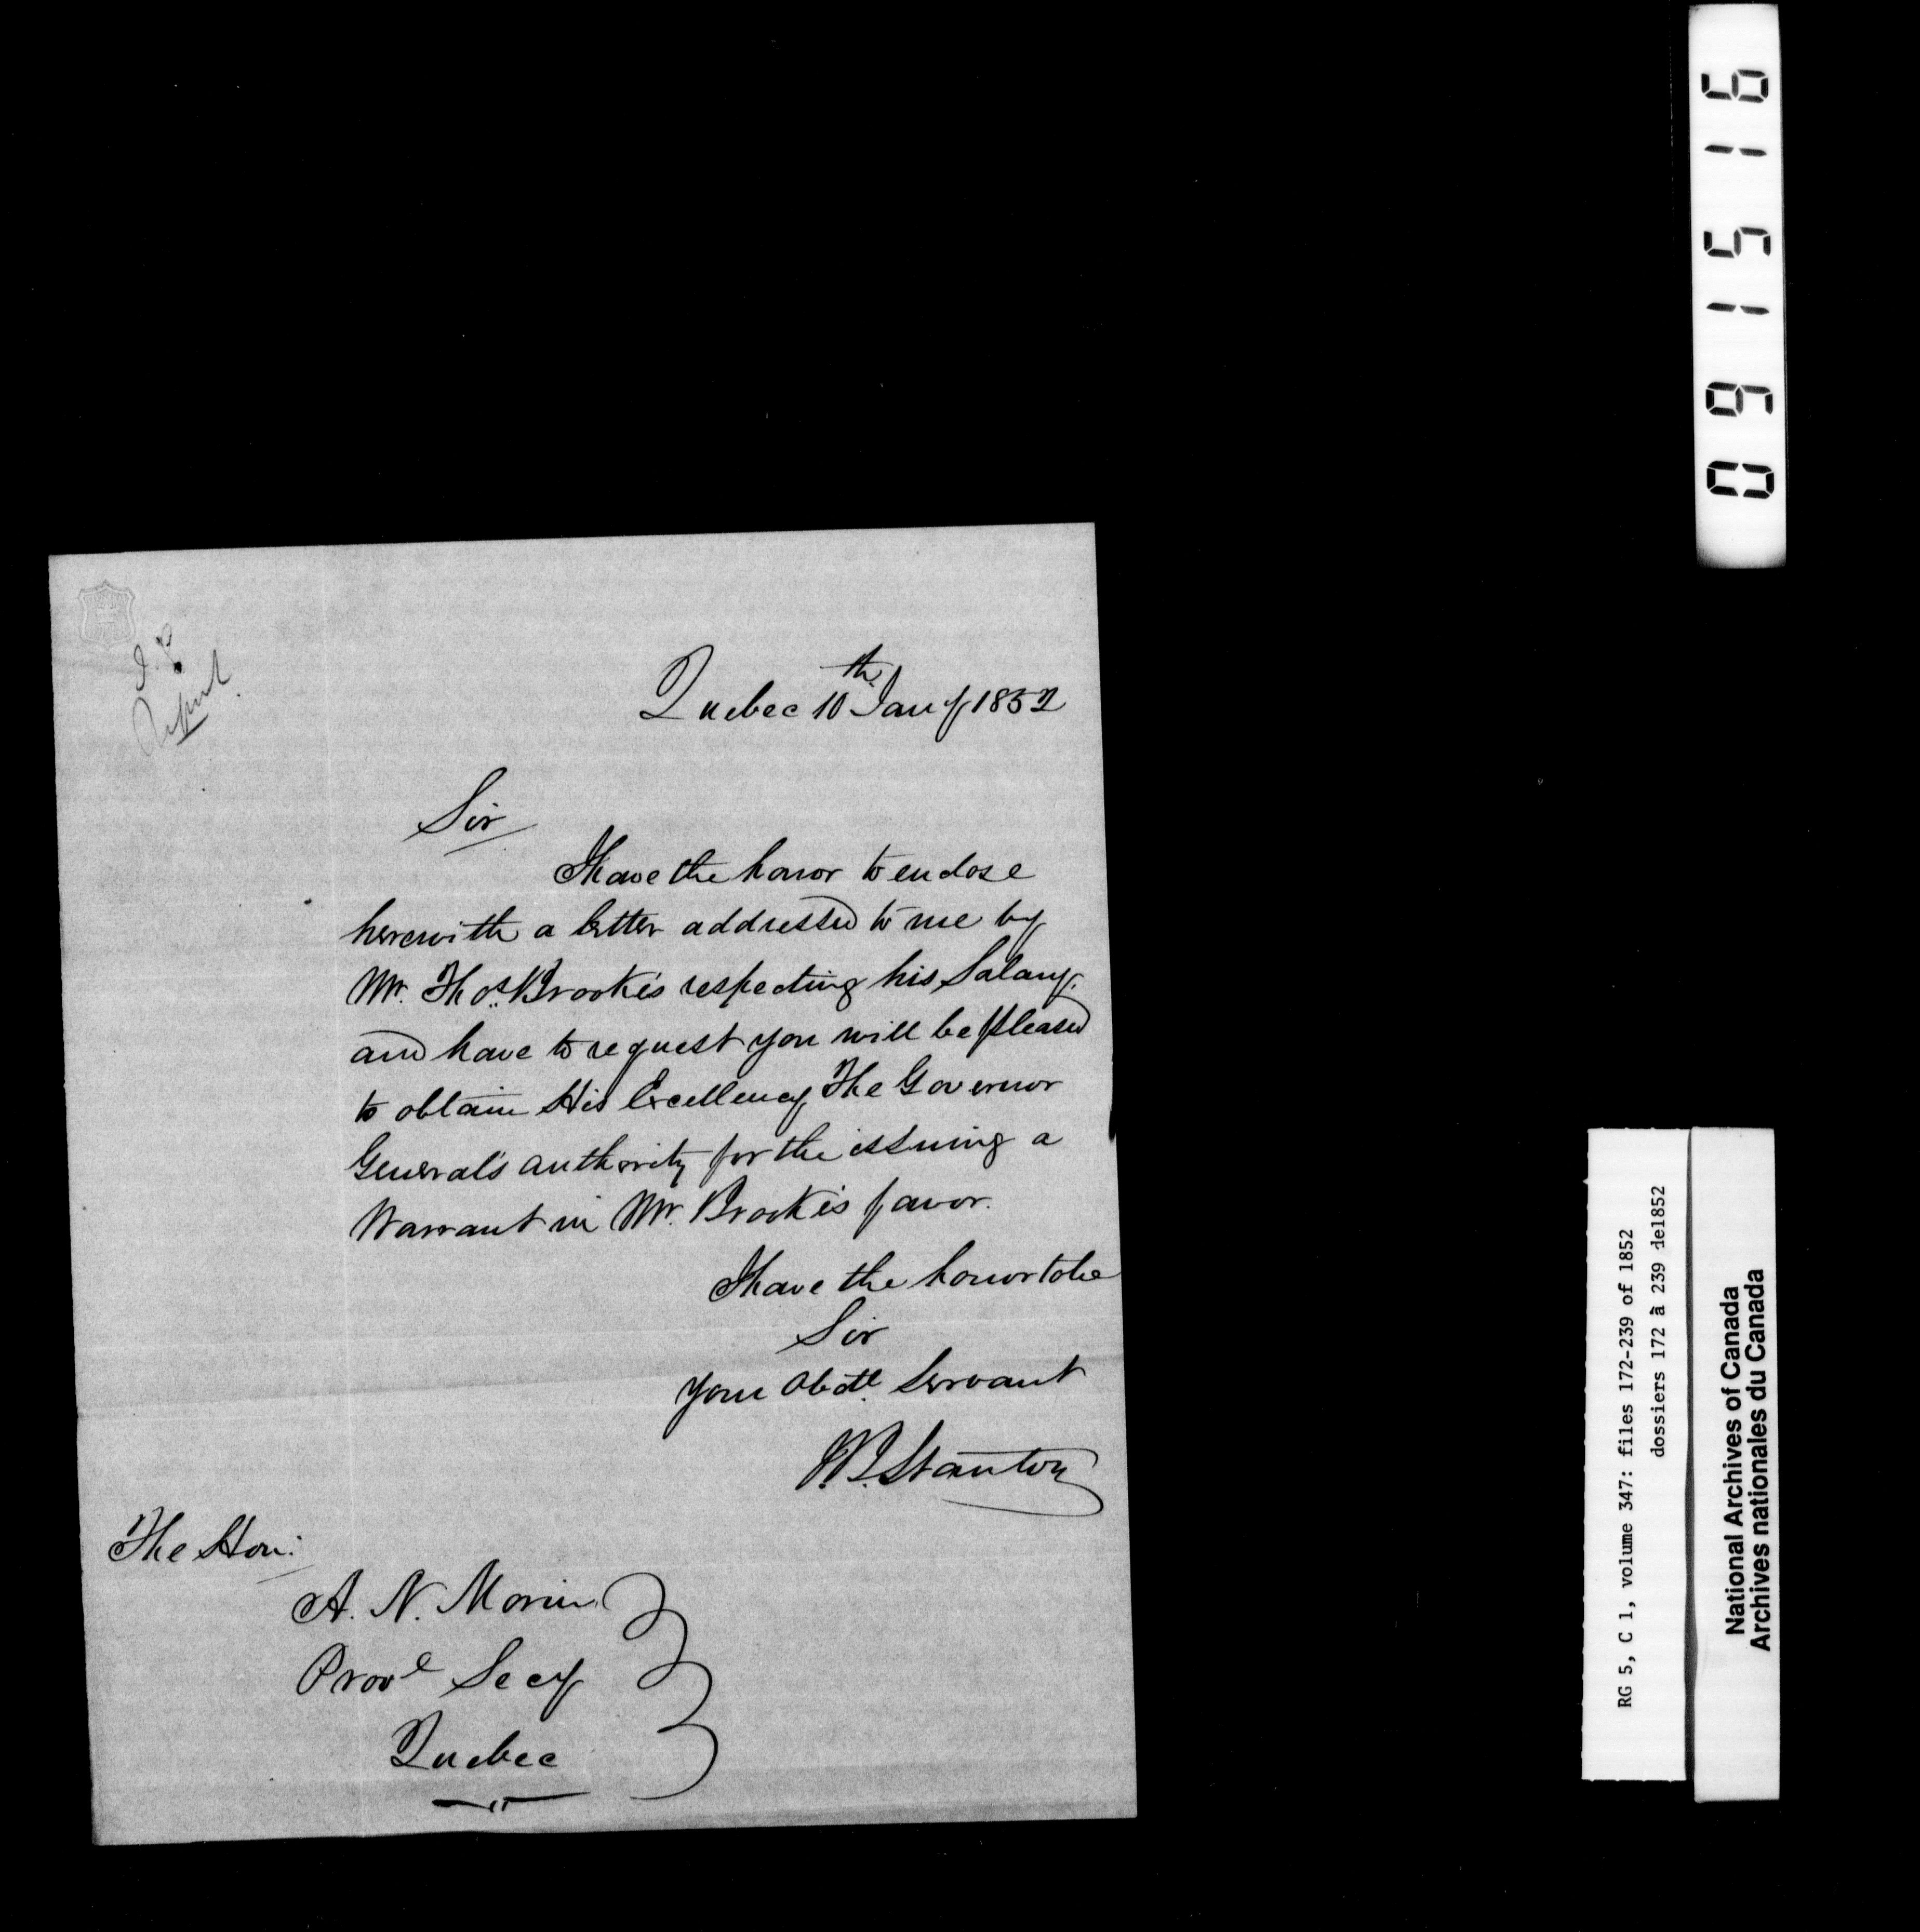 Quebec 10th Jany 1852
Sir
I have the honor to enclose
herewith a letter addressed to me by
Mr. Thos. Brooke's respecting his Salary,
and have to request you will be pleased
to obtain His Excellency The Governor
General's authority for the issuing a
Warrant in Mr. Brook's favor.
I have the honor to be
Sir
Your Obdt. Servant
W. P. Stanton
The Hon:
A. N. Morin
Provl Secy
Quebec
091516
RG 5, C 1, volume 347: files 172-239 of 1852
dossiers 172 à 239 de1852
National Archives of Canada
Archives nationales du Canada